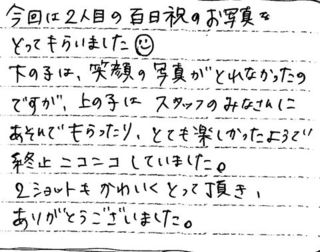 今回は2人目の百日祝のお写真を
とってもらいました☺
下の子は、笑顔の写真がとれなかったの
ですが、上の子は スタッフのみなさんに
あそんでもらったり、とても楽しかったようで
終止ニコニコしていました。
2ショットもかわいくとって頂き、
ありがとうございました。